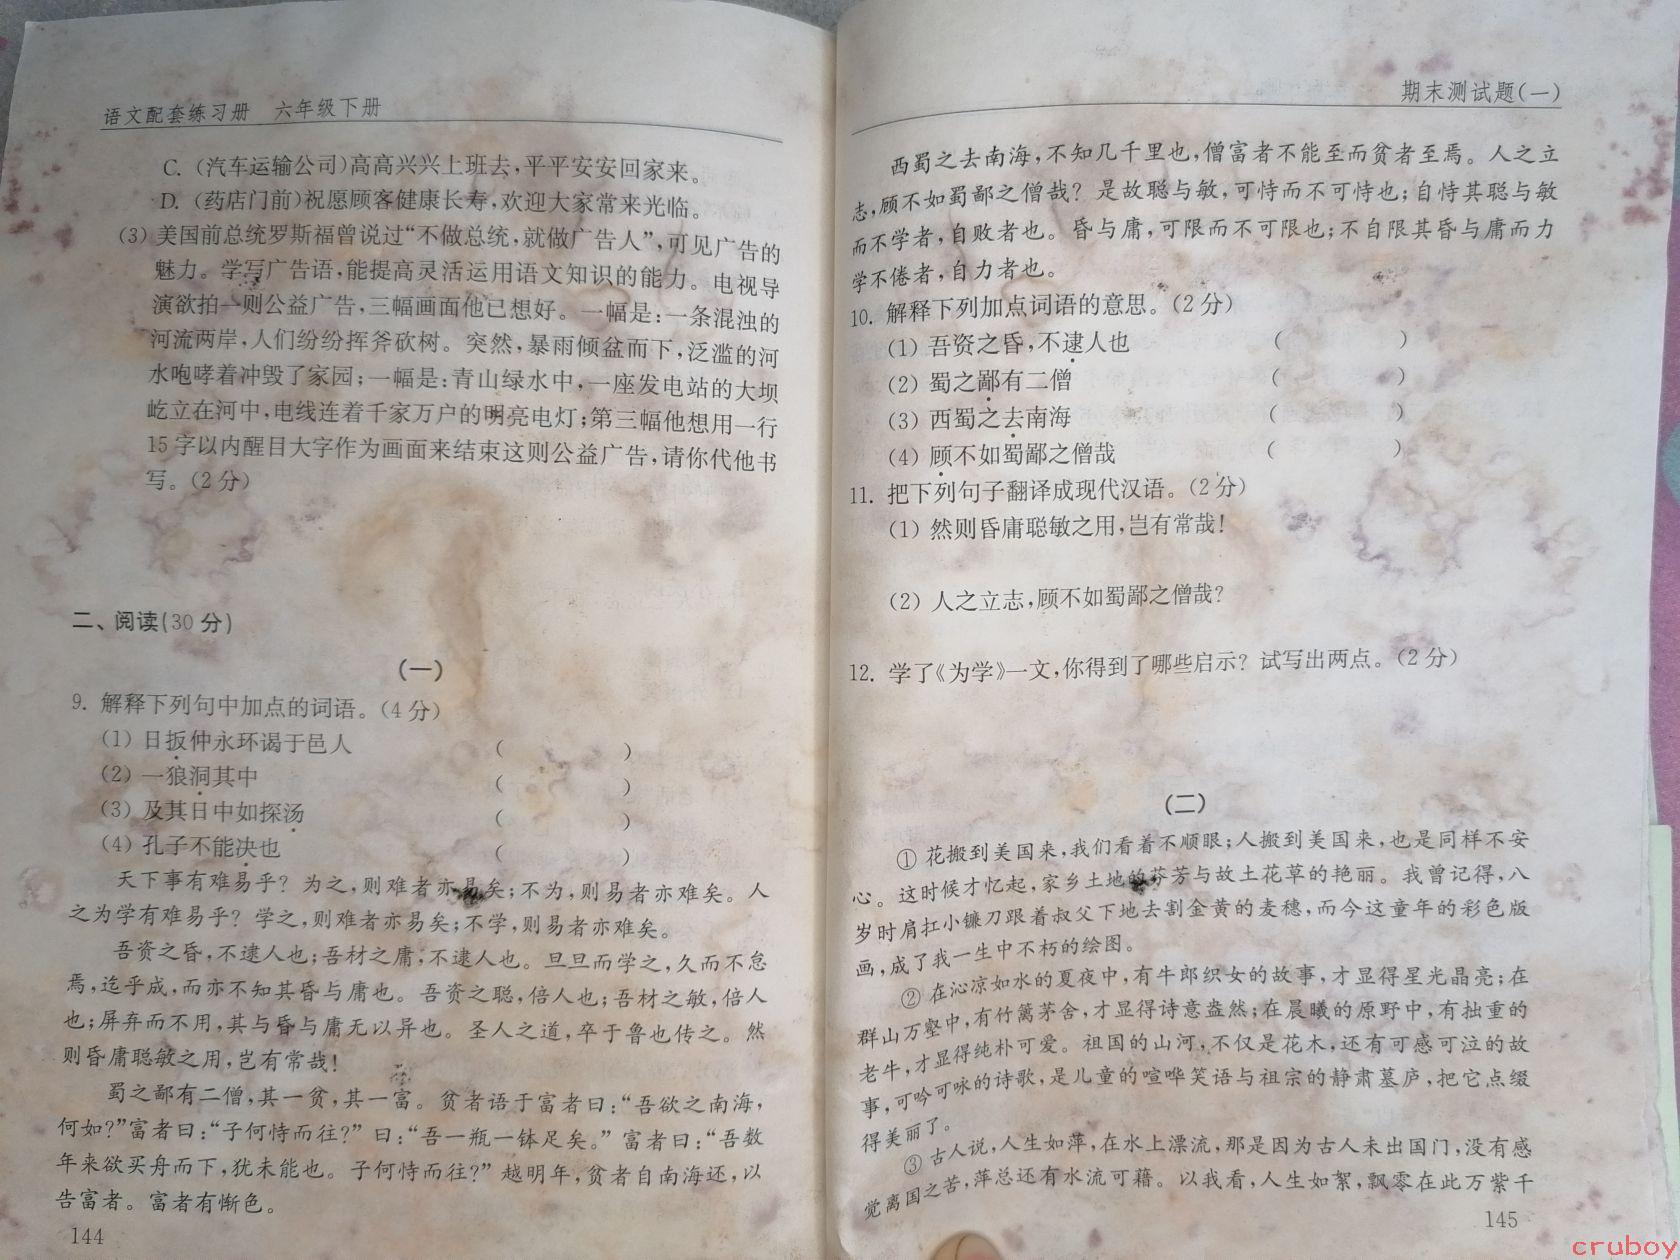 语文配套练习册 六年级下册
C. (汽车运输公司)高高兴兴上班去,平平安安回家来。
D. (药店门前)祝愿顾客健康长寿,欢迎大家常来光临。
(3) 美国前总统罗斯福曾说过“不做总统,就做广告人”,可见广告的
魅力。学写广告语,能提高灵活运用语文知识的能力。电视导
演欲拍一则公益广告,三幅画面他已想好。一幅是:一条混浊的
河流两岸,人们纷纷挥斧砍树。突然,暴雨倾盆而下,泛滥的河
水咆哮着冲毁了家园;一幅是:青山绿水中,一座发电站的大坝
屹立在河中,电线连着千家万户的明亮电灯;第三幅他想用一行
15字以内醒目大字作为画面来结束这则公益广告,请你代他书
写。(2分)
二、阅读(30分)
(一)
9. 解释下列句中加点的词语。(4分)
(1) 日扳仲永环谒于邑人 ( )
(2) 一狼洞其中 ( )
(3) 及其日中如探汤 ( )
(4) 孔子不能决也 ( )
天下事有难易乎? 为之,则难者亦易矣;不为,则易者亦难矣。人
之为学有难易乎? 学之,则难者亦易矣;不学,则易者亦难矣。
吾资之昏,不逮人也;吾材之庸,不逮人也。旦旦而学之,久而不怠
焉,迄乎成,而亦不知其昏与庸也。吾资之聪,倍人也;吾材之敏,倍人
也;屏弃而不用,其与昏与庸无以异也。圣人之道,卒于鲁也传之。然
则昏庸聪敏之用,岂有常哉!
蜀之鄙有二僧,其一贫,其一富。贫者语于富者曰:“吾欲之南海,
何如?”富者曰:“子何恃而往?” 曰:“吾一瓶一钵足矣。” 富者曰:“吾数
年来欲买舟而下,犹未能也。子何恃而往?” 越明年,贫者自南海还,以
告富者。富者有惭色。
144
期末测试题(一)
西蜀之去南海,不知几千里也,僧富者不能至而贫者至焉。人之立
志,顾不如蜀鄙之僧哉? 是故聪与敏,可恃而不可恃也;自恃其聪与敏
而不学者,自败者也。昏与庸,可限而不可限也;不自限其昏与庸而力
学不倦者,自力者也。
10. 解释下列加点词语的意思。(2分)
(1) 吾资之昏,不逮人也 ( )
(2) 蜀之鄙有二僧 ( )
(3) 西蜀之去南海 ( )
(4) 顾不如蜀鄙之僧哉 ( )
11. 把下列句子翻译成现代汉语。(2分)
(1) 然则昏庸聪敏之用,岂有常哉!
(2) 人之立志,顾不如蜀鄙之僧哉?
12. 学了《为学》一文,你得到了哪些启示? 试写出两点。(2分)
(二)
① 花搬到美国来,我们看着不顺眼;人搬到美国来,也是同样不安
心。这时候才忆起,家乡土地的芬芳与故土花草的艳丽。我曾记得,八
岁时肩扛小镰刀跟着叔父下地去割金黄的麦穗,而今这童年的彩色版
画,成了我一生中不朽的绘图。
② 在沁凉如水的夏夜中,有牛郎织女的故事,才显得星光晶亮;在
群山万壑中,有竹篱茅舍,才显得诗意盎然;在晨曦的原野中,有拙重的
老牛,才显得纯朴可爱。祖国的山河,不仅是花木,还有可感可泣的故
事,可吟可咏的诗歌,是儿童的喧哗笑语与祖宗的静肃墓庐,把它点缀
得美丽了。
③ 古人说,人生如萍,在水上漂流,那是因为古人未出国门,没有感
觉离国之苦,萍总还有水流可藉。以我看,人生如絮,飘零在此万紫千
145
cruboy